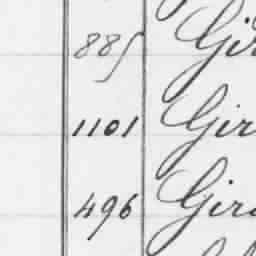 885 Gir
1101 Gir
496 Gir